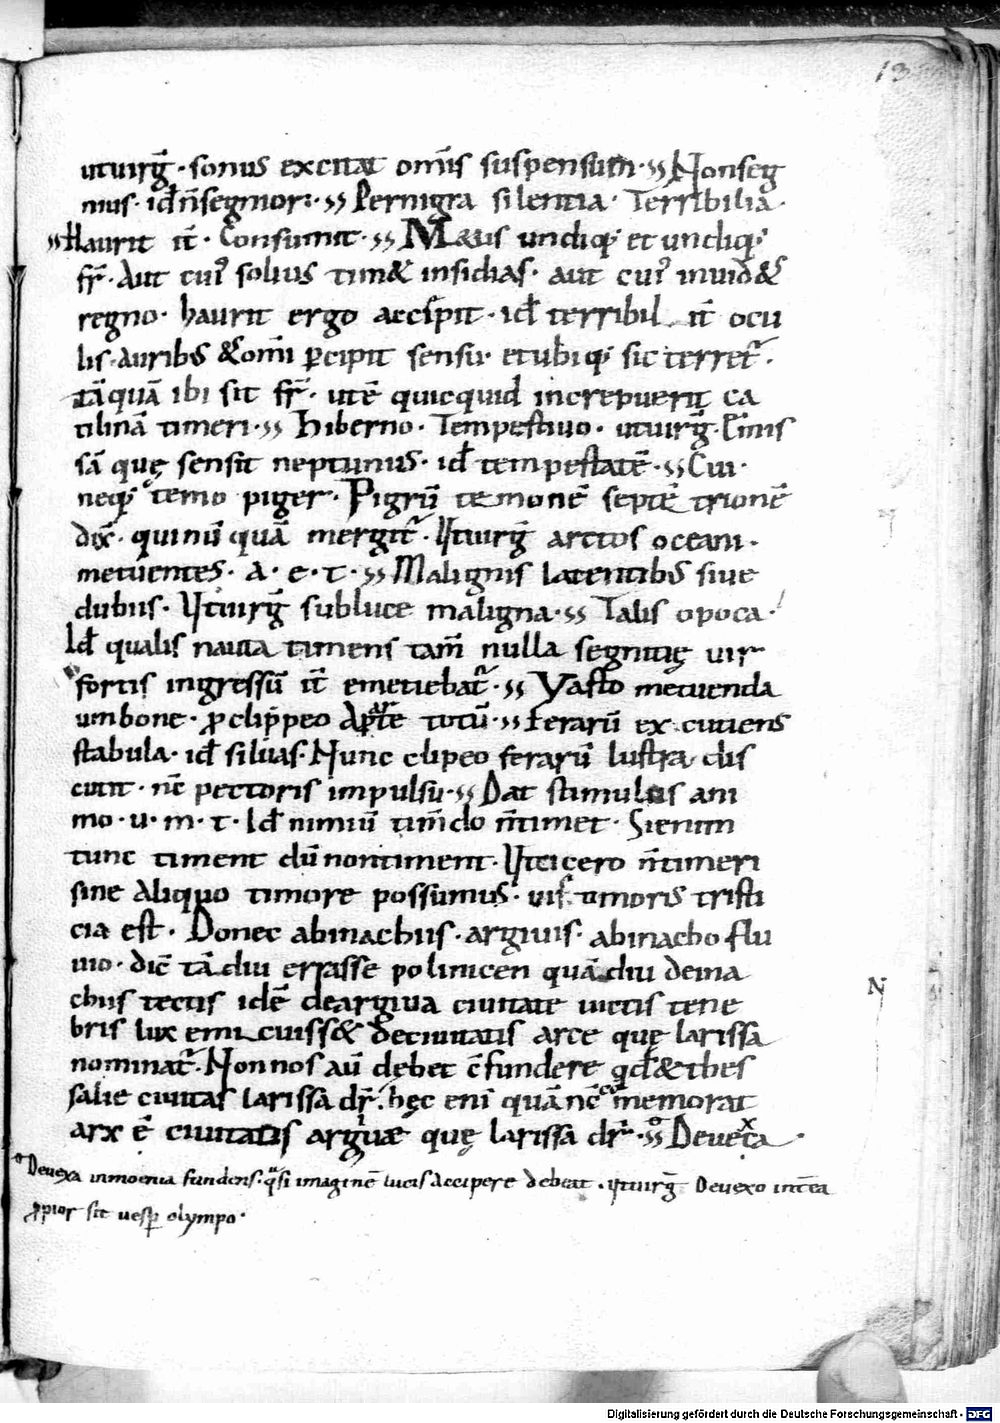 13
utuirḡ · sonus excitat om̄s suspensum · ›› Nonseg
nius · id ñ segnior: · ›› Pernigra silentia · Terribilia ·
›› Haurit it̄ · Consumit · ›› Metus undiq; et undiq;
fr̄ · Aut cui' solius tim& insidias · aut cui' inuid&
regno · haurit ergo accipit · id terribil it̄ ocu
lis · auribus & omī p̄cipit sensu · et ubiq; sic terret̄ ·
tā quā ibi sit fr̄ · ut ē quicquid increpuerit ca
tilinā timeri · ›› hiberno · Tempestiuo · utuirḡ · Emis
sā quę sensit neptunus · id tempestatē · ›› Cui ·
neq; temo piger · Pigrū temonē septē trionē
dix̄ · qui nū quā mergit̄ · Vt uirḡ arctos oceani ·
metuentes · a · e · t · ›› Malignis latentibus siue
dubiis · Vt uirḡ subluce maligna · ›› Talis opoca ·
Id qualis nauta timens tam̄ nulla segnitię uir
fortis ingressū it̄ emetiebat̄ · ›› Vasto metuenda
umbone · p̄ clippeo A parte totū · ›› ferarū excutiens
stabula · id siluas · Nunc clipeo ferarū lustra dis
cutit · nc̄ pectoris impulsu · ›› Dat stimulos ani
mo · u · m · t · Id nimiū tim̄do ñ timet · Sic enim
tunc timent dū non timent · Vt cicero ñ timeri
sine aliquo timore possumus · uis timoris tristi
cia est · Donec abinachiis · argiuis · abinacho flu
uio · dic̄ tā diu errasse polinicen quā diu deina
chiis tectis idē deargiua ciuitate uictis tene
bris lux emicuiss& deciuitatis arce quę larissa
nominat̄ · Non nos aū debet c̄fundere qd & thes
salie ciuitas larissa dr̄ · hęc enī quā nc̄ cōmemorat
arx ē ciuitatis argiuæ quę larissa dr̄ · ›› Deuexa ·
Deuexa inmoenia fundens · q̄si imaginē lucis accipere debeat · Vt uirḡ Deuexo intēa
p̄pior sit uesp̄ olympo ·
N
Digitalisierung gefördert durch die Deutsche Forschungsgemeinschaft - DFG